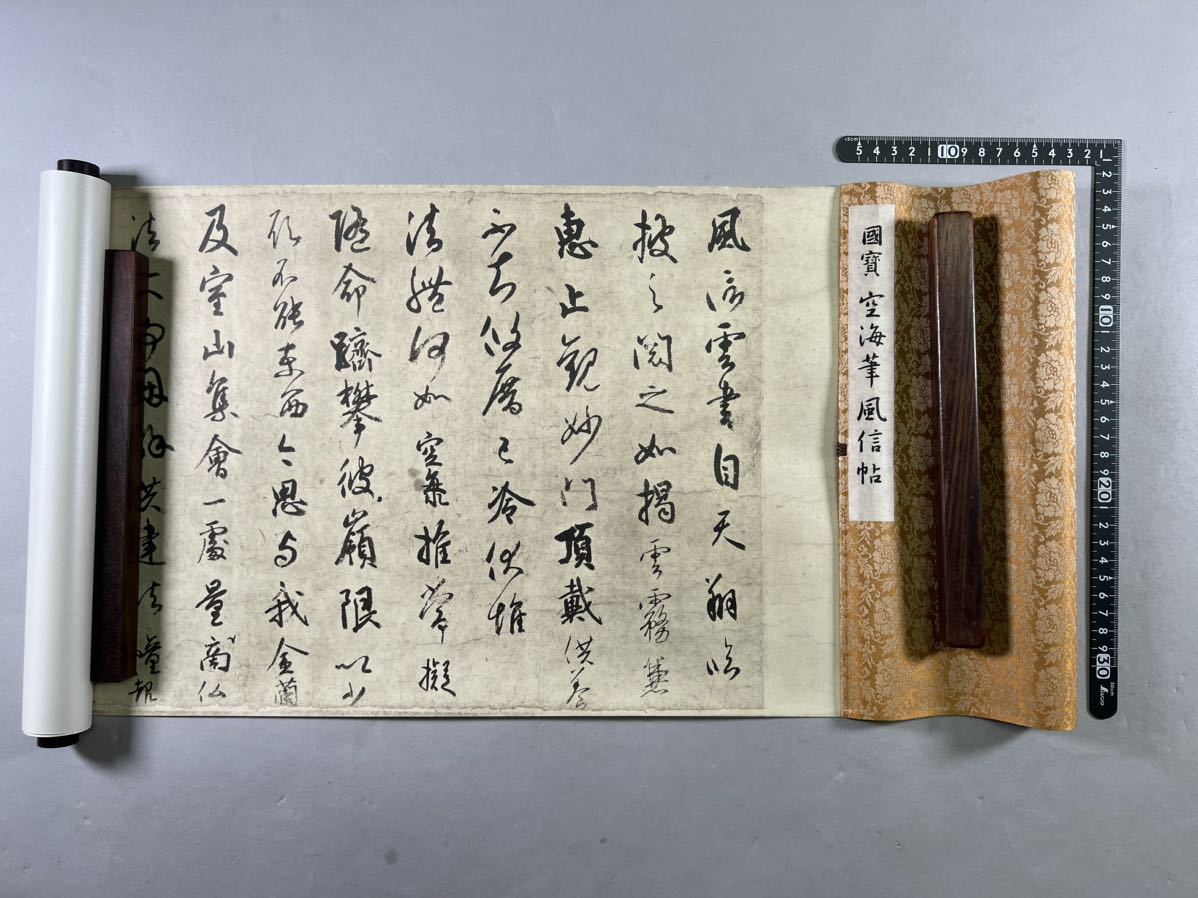 國寶 空海筆 風信帖
風信雲書自天翔臨
披之閱之如揭雲霧兼
恵止観妙門頂戴供養
不知攸厝已冷伏惟
法體何如空海推常擬
隨命躋攀彼嶺限以少
願不能東西今思与我金蘭
及室山集會一處量商仏
法大事因縁共建法幢報
15cm 5 4 3 2 1 10 9 8 7 6 5 4 3 2 1
1 2 3 4 5 6 7 8 9 10 1 2 3 4 5 6 7 8 9 20 1 2 3 4 5 6 7 8 9 30 30cm